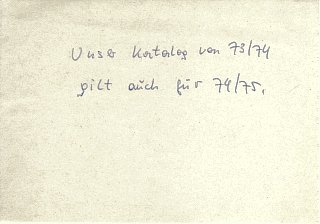 Unser Katalog von 73/74
gilt auch für 74/75.